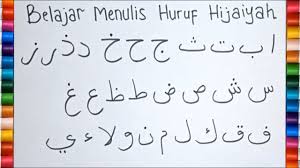 Belajar Menulis Huruf Hijaiyah
ا ب ت ث ج ح خ د ذ ر ز
س ش ص ض ط ظ ع غ
ف ق ك ل م ن و لا ء ي